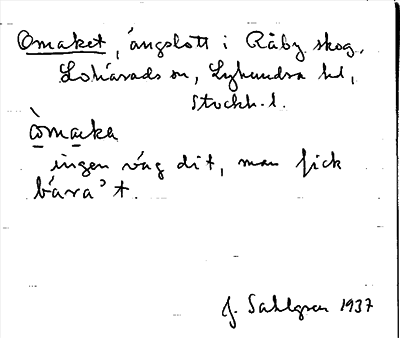 Omaket, ängslott i Råby skog,
Lohärads sn, Lyhundra hd,
Stockh. l.
òmaka
ingen väg dit, man fick
bära't.
J. Sahlgren 1937